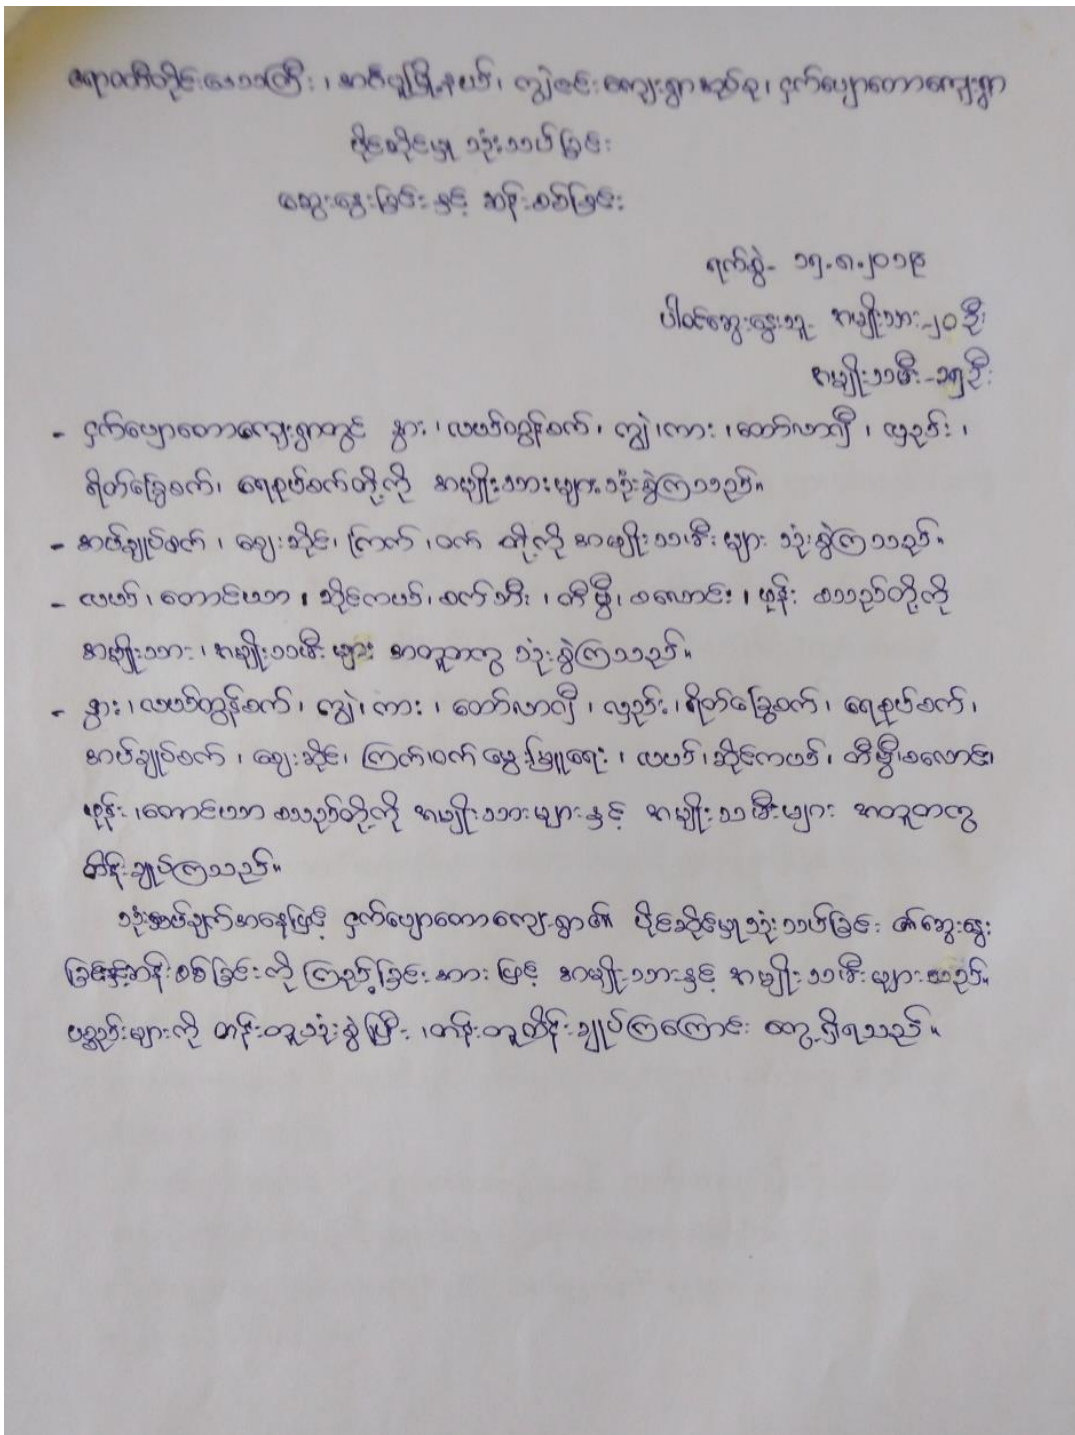 ဧရာဝတီတိုင်းဒေသကြီး ၊ အင်္ဂပူမြို့နယ်၊ ကျွဲခင်းကျေးရွာအုပ်စု ၊ ငှက်ပျောတောကျေးရွာ
ပိုင်ဆိုင်မှု သုံးသပ်ခြင်း
ဆွေးနွေးခြင်း နှင့် ဆန်းစစ်ခြင်း
ရက်စွဲ - ၁၅.၈.၂၀၁၉
ပါဝင်ဆွေးနွေးသူ - အမျိုးသား - ၂၀ ဦး
အမျိုးသမီး - ၁၅ ဦး
- ငှက်ပျောတောကျေးရွာတွင် နွား ၊ လယ်ထွန်စက် ၊ ကျွဲ ၊ ကား ၊ ထော်လာဂျီ ၊ လှည်း ၊
ရိတ်ခြွေစက် ၊ ရေစုပ်စက်တို့ကို အမျိုးသားများသုံးစွဲကြသည်။
- အပ်ချုပ်စက် ၊ ဈေးဆိုင်၊ ကြက် ၊ ဝက် တို့ကို အမျိုးသမီးများ သုံးစွဲကြသည်။
- လယ် ၊ တောင်ယာ ၊ ဆိုင်ကယ် ၊ စက်ဘီး ၊ တီဗွီ ၊ စလောင်း ၊ ဖုန်း စသည်တို့ကို
အမျိုးသား ၊ အမျိုးသမီး များ အတူတကွ သုံးစွဲကြသည်။
- နွား ၊ လယ်ထွန်စက် ၊ ကျွဲ ၊ ကား ၊ ထော်လာဂျီ ၊ လှည်း ၊ ရိတ်ခြွေစက် ၊ ရေစုပ်စက် ၊
အပ်ချုပ်စက် ၊ ဈေးဆိုင်၊ ကြက်၊ ဝက် မွေးမြူရေး ၊ လယ် ၊ ဆိုင်ကယ် ၊ တီဗွီ ၊ စလောင်း၊
ဖုန်း ၊ တောင်ယာ စသည်တို့ကို အမျိုးသားများနှင့် အမျိုးသမီးများ အတူတကွ
ထိန်းချုပ်ကြသည်။
သုံးသပ်ချက်အနေဖြင့် ငှက်ပျောတောကျေးရွာ၏ ပိုင်ဆိုင်မှုသုံးသပ်ခြင်း ၏ဆွေးနွေး
ခြင်းနှင့်ဆန်းစစ်ခြင်းကို ကြည့်ခြင်းအားဖြင့် အမျိုးသားနှင့် အမျိုးသမီးများသည်။
ပစ္စည်းများကို တန်းတူသုံးစွဲပြီး ၊ တန်းတူထိန်းချုပ်ကြကြောင်း တွေ့ရှိရသည်။